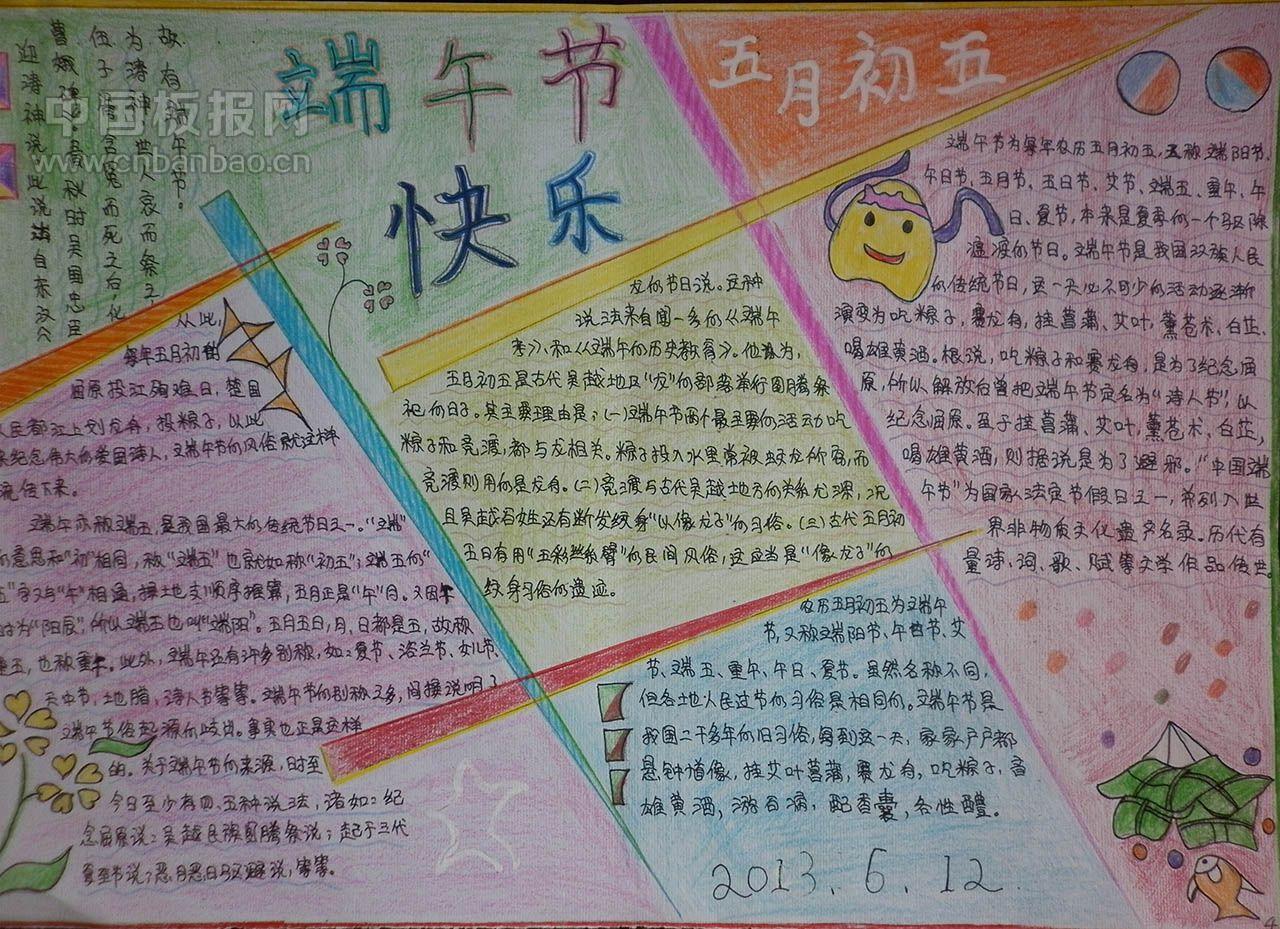 端午节
快乐
五月初五
中国板报网
www.cnbanbao.cn
故有端午节。
为涛神，世人哀而祭之，
伍子胥含冤而死之后，化
曹娥碑》。春秋时吴国忠臣
迎涛神说，此说法出自东汉《
从此，
每年五月初
屈原投江殉难日，楚国
人民都江上划龙舟，投粽子，以此
来纪念伟大的爱国诗人，端午节的风俗就这样
流传下来。
端午亦称端五，是我国最大的传统节日之一。“端”
的意思和“初”相同，称“端五”也就如称“初五”；端五的“
五”字又与“午”相通，按地支顺序推算，五月正是“午”月。又因午
时为“阳辰”，所以端五也叫“端阳”。五月五日，月、日都是五，故称
重五，也称重午。此外，端午还有许多别称，如：夏节、浴兰节、女儿节、
天中节、地腊、诗人节等等。端午节的别称之多，间接说明了
端午节俗起源的歧出。事实也正是这样
的。关于端午节的来源，时至
今日至少有四、五种说法，诸如：纪
念屈原说：吴越民族图腾祭说；起于三代
夏至节说；恶月恶日驱避说，等等。
龙的节日说。这种
说法来自闻一多的《端午
考》、和《端午的历史教育》。他认为，
五月初五是古代吴越地区“龙”的部落举行图腾祭
祀的日子。其主要理由是；(一)端午节两个最主要的活动吃
粽子和竞渡，都与龙相关。粽子投入水里常被蛟龙所窃，而
竞渡则用的是龙舟。(二)竞渡与古代吴越地方的关系尤深，况
且吴越百姓还有断发纹身“以像龙子”的习俗。(三)古代五月初
五日有用“五彩丝系臂”的民间风俗，这应当是“像龙子”的
纹身习俗的遗迹。
端午节为每年农历五月初五，又称端阳节、
午日节、五月节、五日节、艾节、端五、重午、午
日、夏节，本来是夏季的一个驱除
瘟疫的节日。端午节是我国汉族人民
的传统节日，这一天必不可少的活动逐渐
演变为吃粽子，赛龙舟，挂菖蒲、艾叶，薰苍术、白芷，
喝雄黄酒。根说，吃粽子和赛龙舟，是为了纪念屈
原，所以解放后曾把端午节定名为“诗人节”，以
纪念屈原。至于挂菖蒲、艾叶，薰苍术，白芷，
喝雄黄酒，则据说是为了避邪。“中国端
午节”为国家法定节假日之一，并列入世
界非物质文化遗产名录。历代有
量诗、词、歌、赋等文学作品传世。
农历五月初五为端午
节，又称端阳节、午日节、艾
节、端五、重午、午日、夏节。虽然名称不同，
但各地人民过节的习俗是相同的。端午节是
我国二千多年的旧习俗，每到这一天，家家户户都
悬钟馗像，挂艾叶菖蒲，赛龙舟，吃粽子，
雄黄酒，游百病，配香囊，备牲醴。
2013.6.12